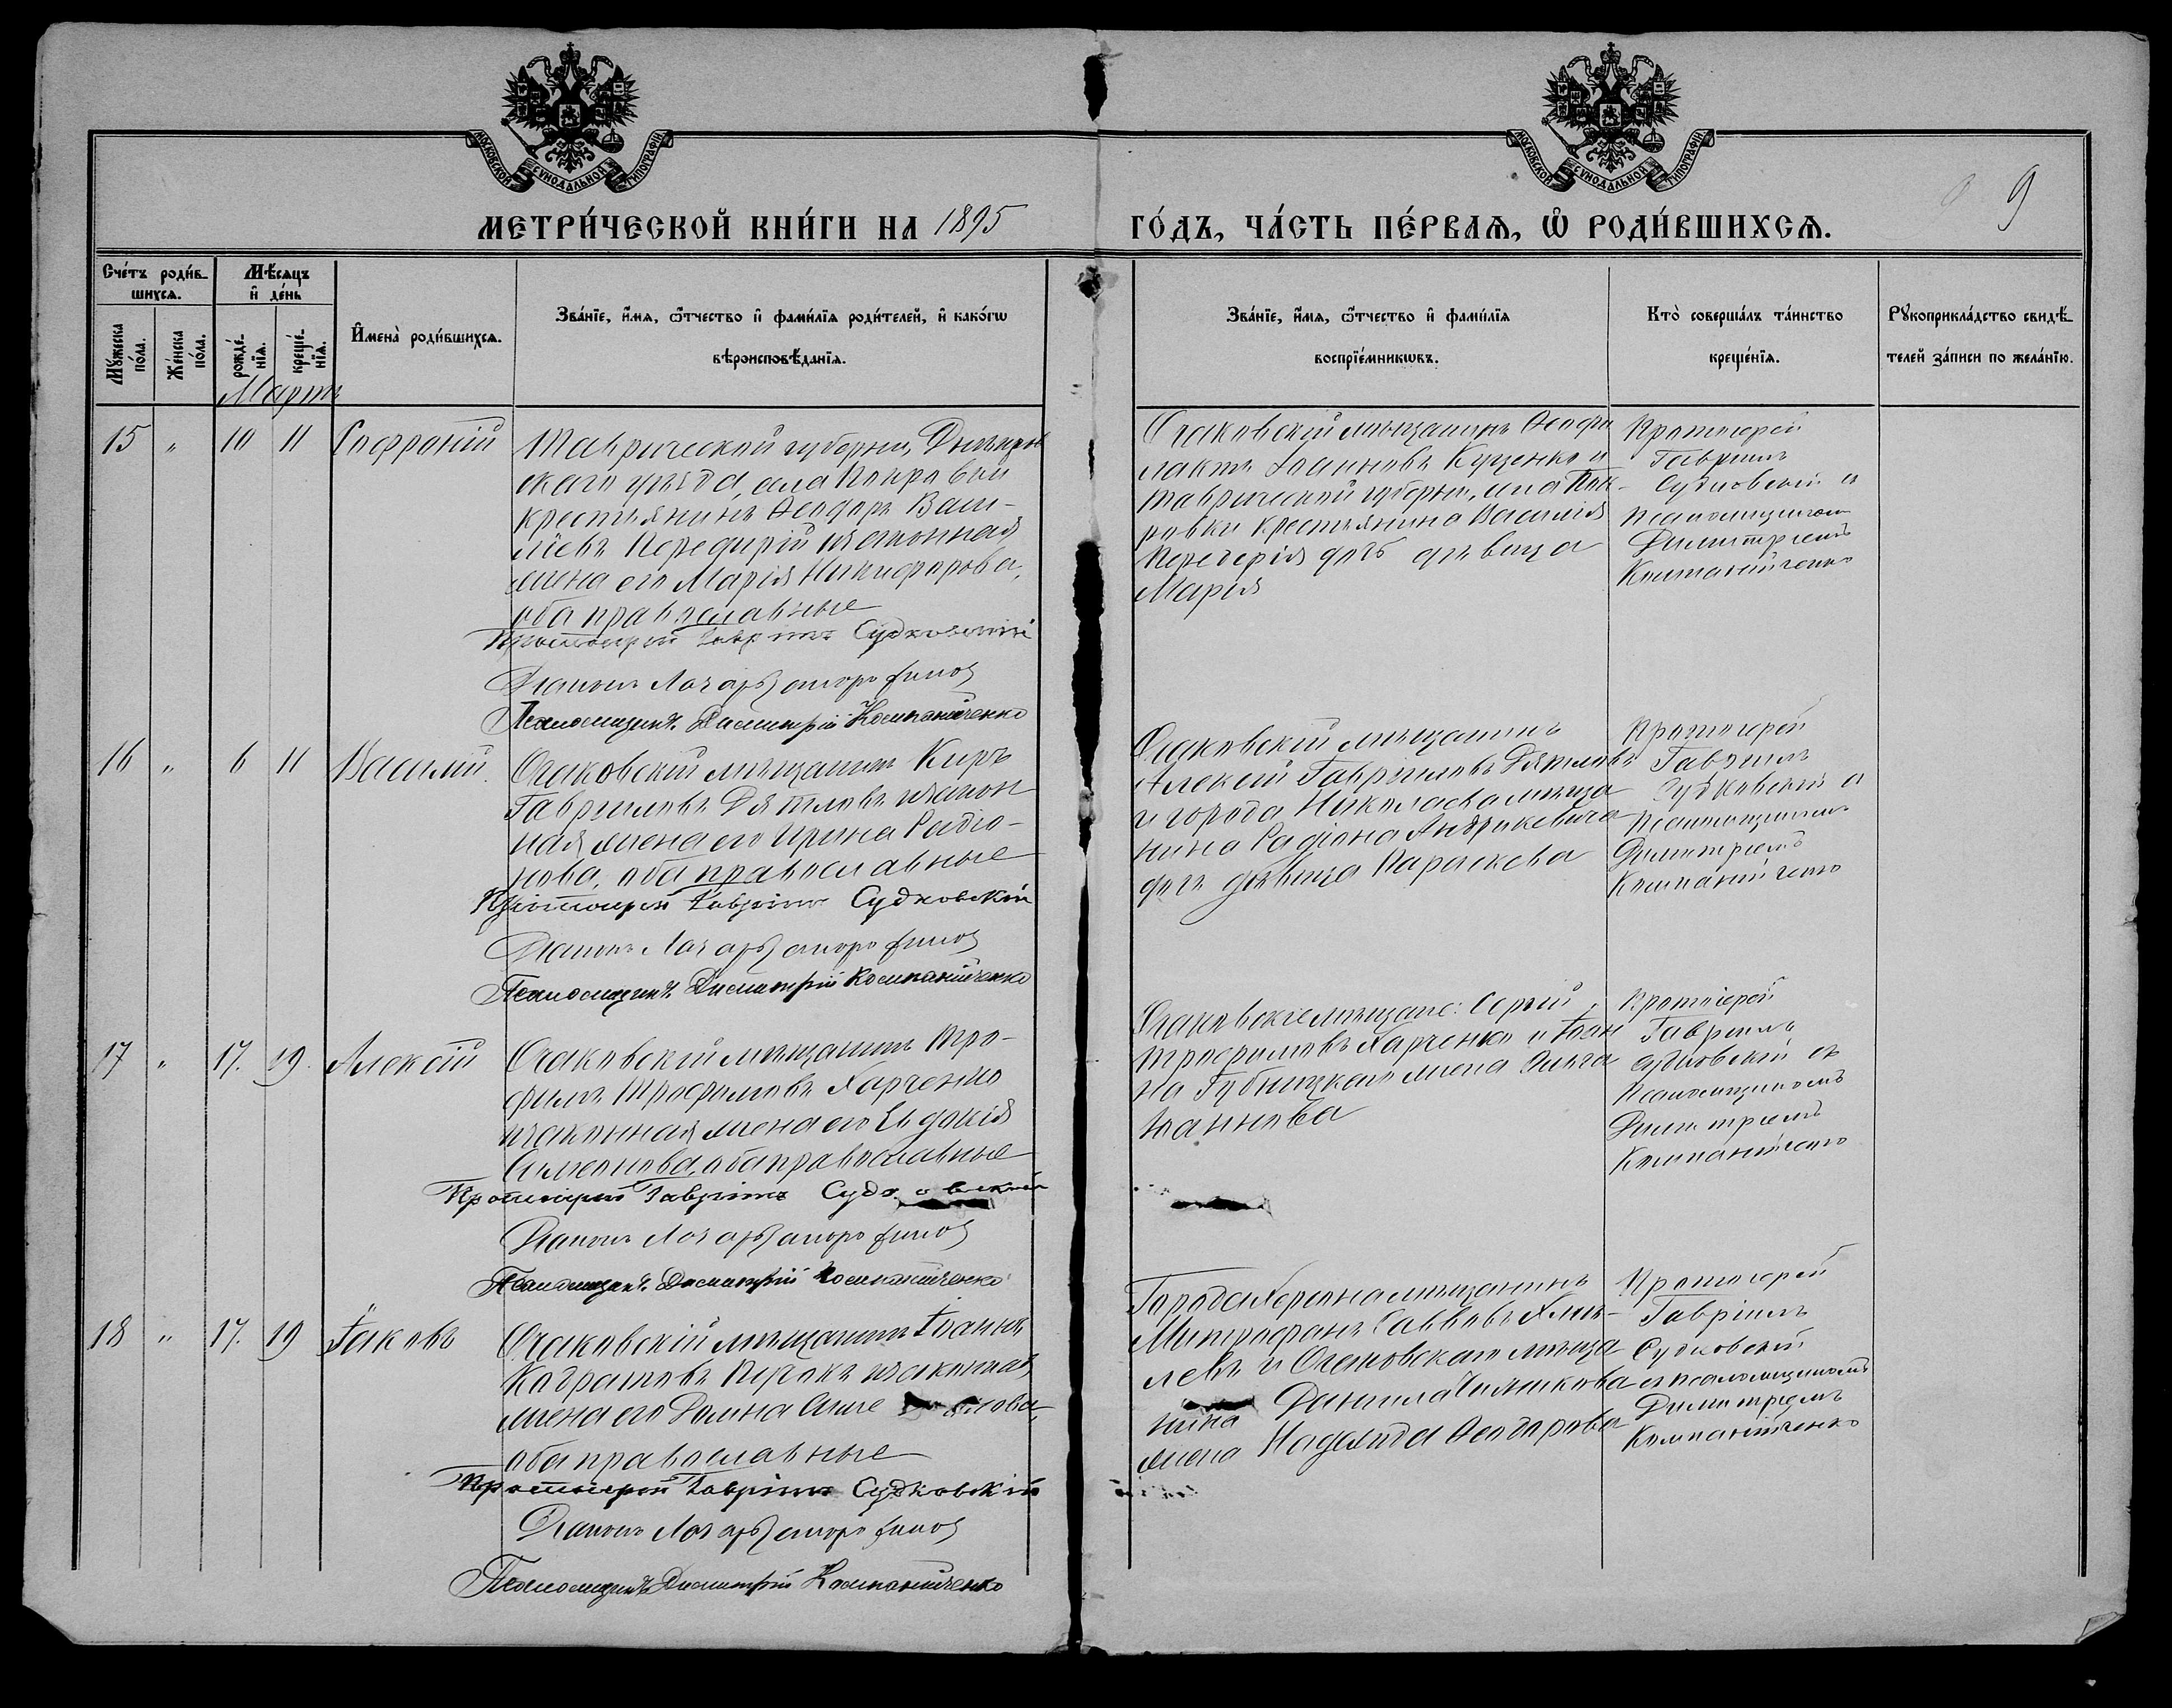 МОСКОВСКОЙ СУНОДАЛЬНОЙ ТИПОГРАФІИ
МОСКОВСКОЙ СУНОДАЛЬНОЙ ТИПОГРАФІИ
9
МЕТРИ́ЧЕСКОЙ КНИ́ГИ НА 1895
ГО́ДЪ, ЧА́СТЬ ПЕ́РВАѦ, Ѡ҆ РОДИ́ВШИХСѦ.
Сче́тъ роди́в-
шихсѧ.
Мꙋ́жеска по́ла.
Же́нска по́ла.
Мѣ́сѧцъ
и҆ де́нь
рожде́-
нїѧ.
креще́-
нїѧ.
Мартъ
И҆мена̀ роди́вшихсѧ.
Зва́нїе, и҆́мѧ, ѻ҆́тчество и҆ фами́лїѧ роди́телей, и҆ како́гѡ
вѣроисповѣ́данїѧ.
Зва́нїе, и҆́мѧ, ѻ҆́тчество и҆ фами́лїѧ
воспрїе́мникѡвъ.
Кто̀ соверша́лъ та́инство
креще́нїѧ.
Рꙋкоприкла́дство свидѣ́-
телей за́писи по жела́нїю.
15 " 10 11 Софроній
Таврической губерніи, Днѣпров
скаго уѣзда, села Покровки
крестьянинъ Ѳеодоръ Васи-
ліевъ и законная
жена его Марія Никифорова,
оба православные
Протоіерей Гавріилъ Судковскій
Псаломщикъ Димитрій Компанійченко
Очаковскій мѣщанинъ Ѳеофи
лактъ Іоанновъ Куценко и
Таврической губерніи, села Пок-
ровки крестьянина Василія
дочь дѣвица
Марія
Протоіерей
Гавріилъ
Судковскій съ
псаломщикомъ
Димитріемъ
Компанійченко
16 " 6 11 Василій
Очаковскій мѣщанинъ Киръ
Гавриловъ Дятловъ и закон
ная жена его Ирина Радіо-
нова, оба православные
Протоіерей Гавріилъ Судковскій
Псаломщикъ Димитрій Компанійченко
Очаковскій мѣщанинъ
Алексій Гавріиловъ Дятловъ
и города Николаева мѣща
нина Радіона Андрикевича
дочь дѣвица Параскева
Протоіерей
Гавріилъ
Судковскій съ
псаломщикомъ
Димитріемъ
Компанійченко
17 " 17. 19. Алексій
Очаковскій мѣщанинъ Тро-
фимъ Трофимовъ Харченко
и законная жена его Евдокія
Симеонова, оба православные
Протоіерей Гавріилъ Судковскій
Псаломщикъ Димитрій Компанійченко
Очаковскіе мѣщане: Сергій
Трофимовъ Харченко и Іоан
на Губницкаго жена Ольга
Іоаннова
Протоіерей
Гавріилъ
Судковскій съ
псаломщикомъ
Димитріемъ
Компанійченко
18 " 17. 19 Іаковъ
Очаковскій мѣщанинъ Іоаннъ
Кодратовъ и законная
жена его Домна
оба православные
Протоіерей Гавріилъ Судковскій
Псаломщикъ Димитрій Компанійченко
Города Херсона мѣщанинъ
Митрофанъ Савовъ Хмы-
левъ и Очаковскаго мѣща
нина Даніила
жена Надежда Ѳеодорова
Протоіерей
Гавріилъ
Судковскій
съ псаломщикомъ
Димитріемъ
Компанійченко